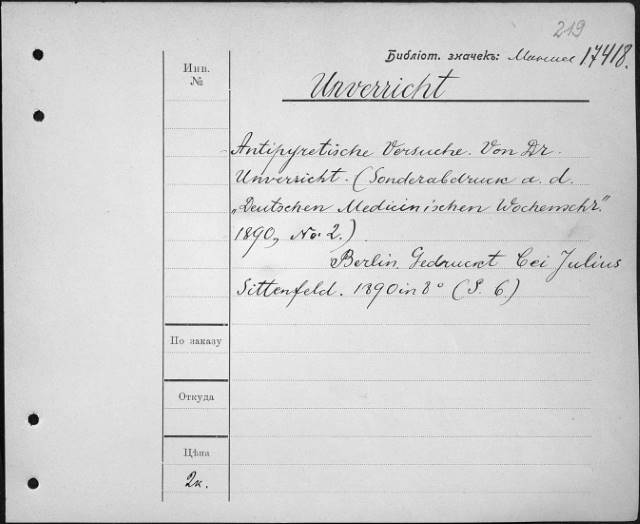 219
Библіот. значекъ: 17418.
Инв.
№
Unverricht
Antipyretische Versuche. Von Dr.
Unverricht. (Sonderabdruck a. d.
„Deutschen Medicinischen Wochenschr."
1890, No. 2.)
Berlin. Gedruckt bei Julius
Sittenfeld. 1890 in 8° (S. 6.)
По заказу
Откуда
Цѣна
2к.